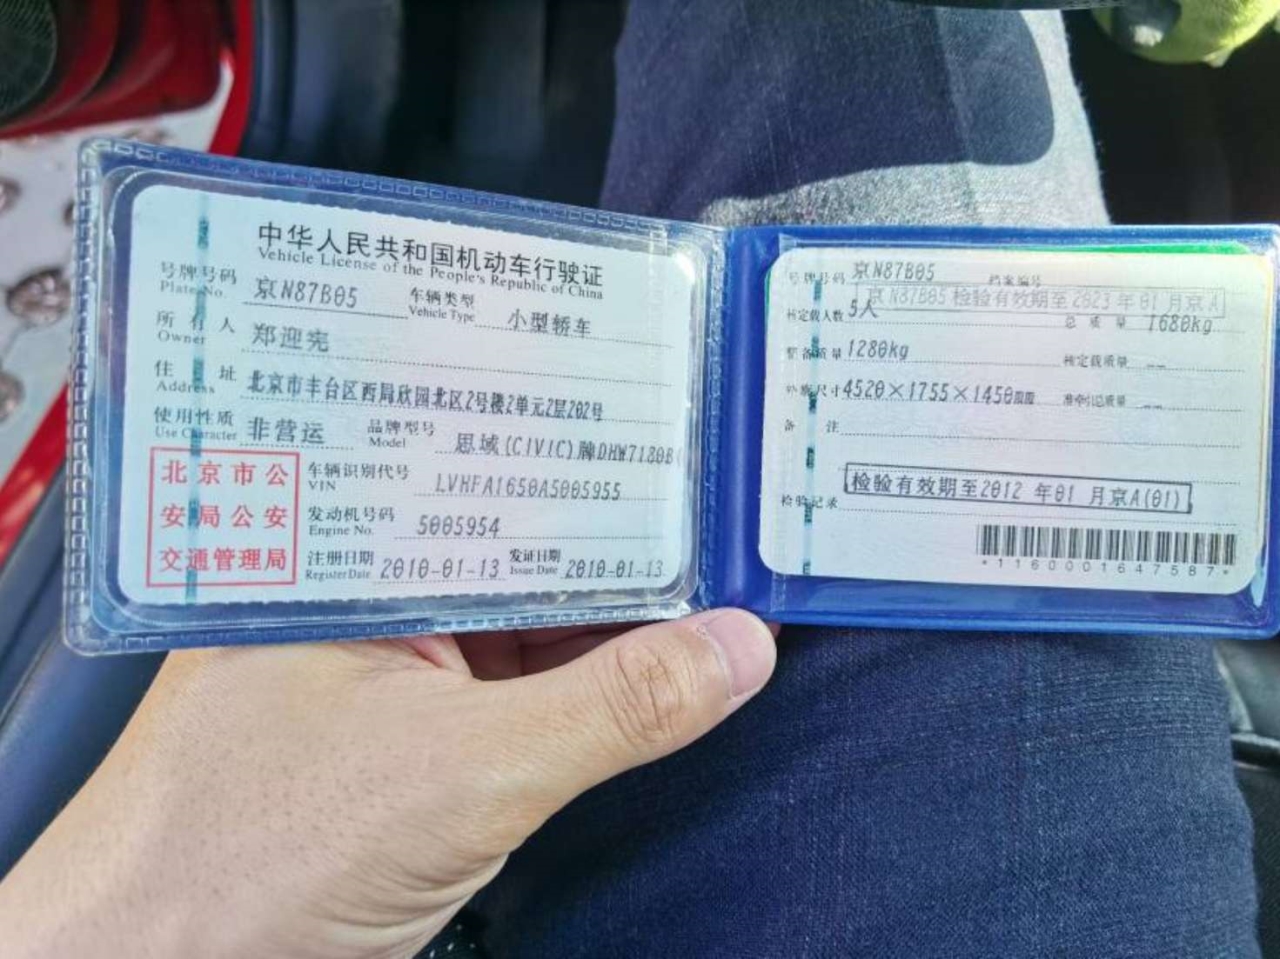 中华人民共和国机动车行驶证
Vehicle License of the People's Republic of China
号牌号码 京N87B05 车辆类型 小型轿车
Plate No. Vehicle Type
所有人 郑迎宪
Owner
住址 北京市丰台区西局欣园北区2号楼2单元2层202号
Address
使用性质 非营运 品牌型号 思域(CIVIC)牌DHW7180B
Use Character Model
北京市公
安局公安
交通管理局
车辆识别代号 LVHFA1650A5005955
VIN
发动机号码 5005954
Engine No.
注册日期 2010-01-13 发证日期 2010-01-13
Register Date Issue Date
号牌号码 京N87B05 档案编号
京N87B05 检验有效期至2023年01月京A
核定载人数 5人 总质量 1680kg
整备质量 1280kg 核定载质量 --
外廓尺寸 4520×1755×1450mm 准牵引总质量 --
备注
检验记录 检验有效期至2012年01月京A(01)
*1160001647587*